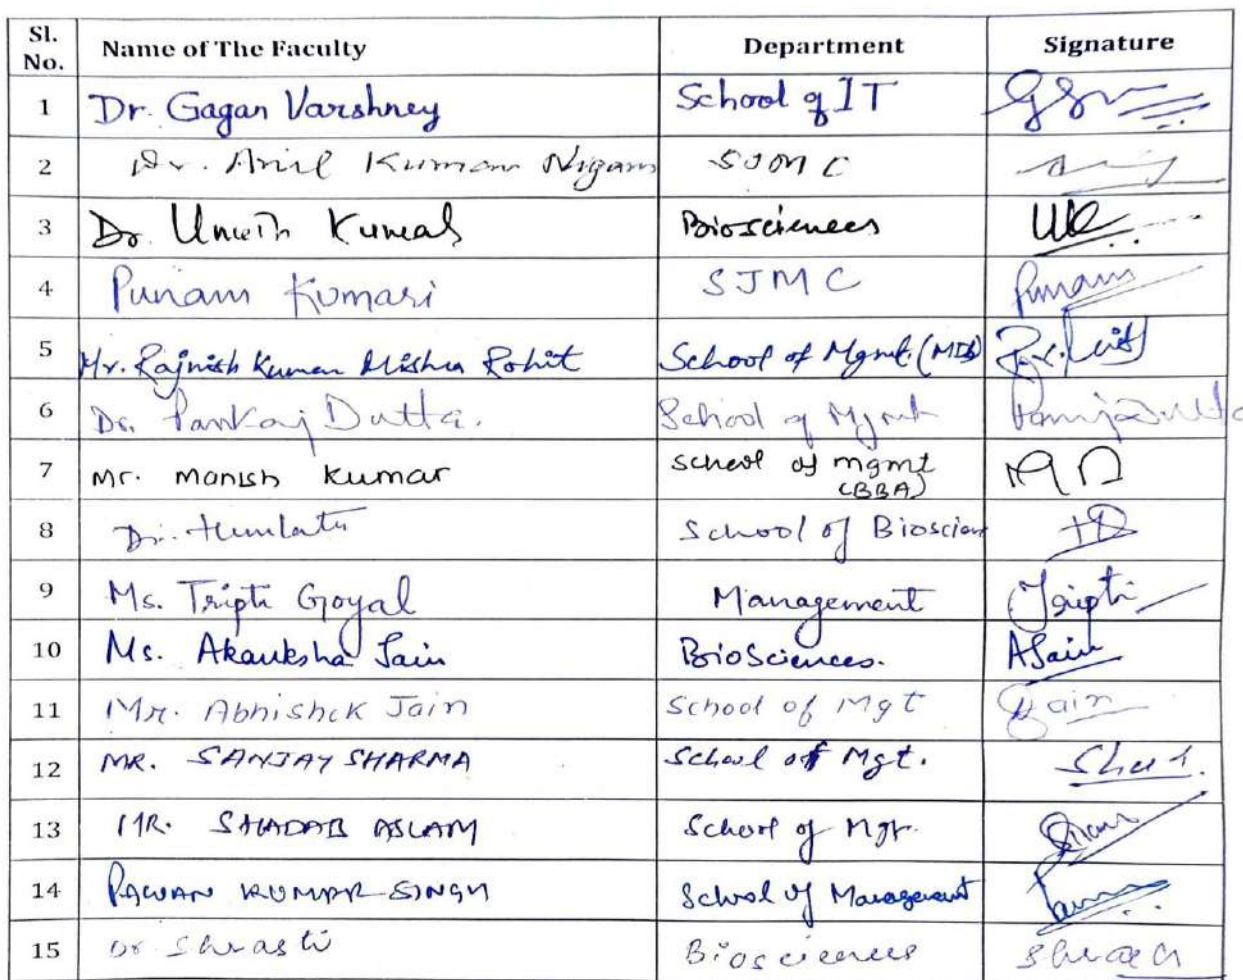 Sl. No. Name of The Faculty Department Signature
1 Dr. Gagan Varshney School of IT
2 Dr. Anil Kumar Nigam SJMC
3 Dr. Umesh Kumar Biosciences UK
4 Punam Kumari SJMC Punam
5 Mr. Rajnish Kumar Mishra Rohit School of Mgmt. (MIB)
6 Dr. Pankaj Dutta. School of Mgmt
7 Mr. Manish Kumar School of mgmt (BBA)
8 Dr. Hemlata School of Bioscien
9 Ms. Tripti Goyal Management Tripti
10 Ms. Akanksha Jain BioSciences. AJain
11 Mr. Abhishek Jain School of Mgt Jain
12 MR. SANJAY SHARMA School of Mgt.
13 MR. SHADAB ASLAM School of Mgt.
14 PAWAN KUMAR SINGH School of Management
15 Dr Shrasti Biosciences